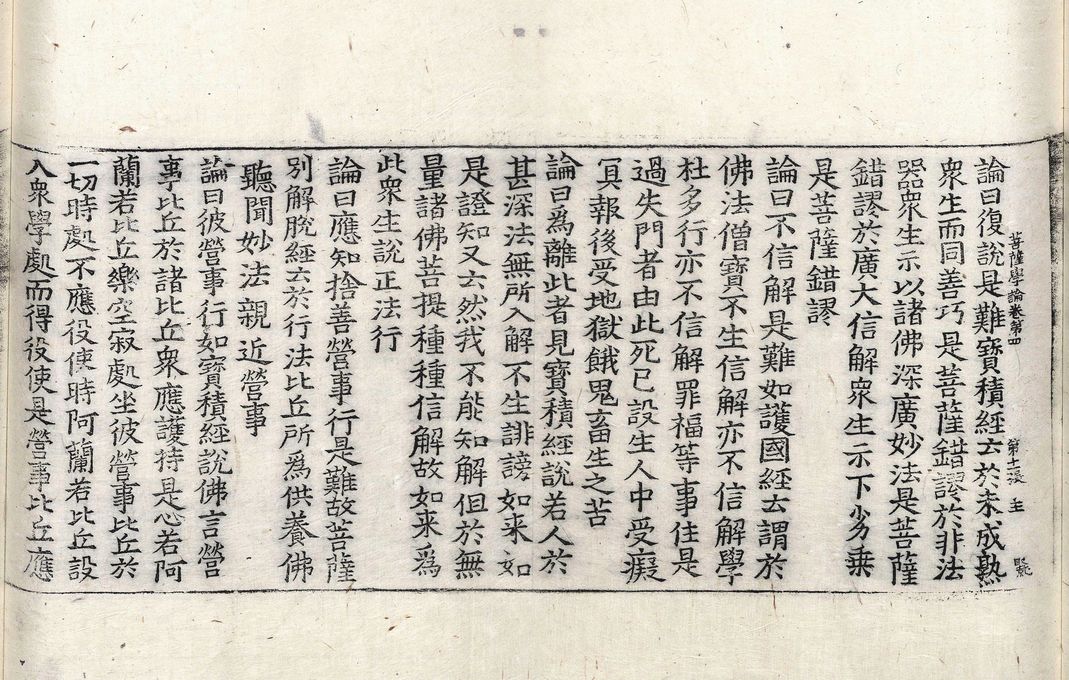 菩薩學論卷第四 第十二張 主 號
論曰復說是難寶積經云於未成熟
衆生而同善巧是菩薩錯謬於非法
器衆生示以諸佛深廣妙法是菩薩
錯謬於廣大信解衆生示下劣乗
是菩薩錯謬
論曰不信解是難如護國經云謂於
佛法僧寶不生信解亦不信解學
杜多行亦不信解罪福等事住是
過失門者由此死已設生人中受癡
冥報後受地獄餓鬼畜生之苦
論曰爲離此者見寶積經說若人於
甚深法無所入解不生誹謗如来如
是證知又云然我不能知解但於無
量諸佛菩提種種信解故如来爲
此衆生說正法行
論曰應知捨善營事行是難故菩薩
別解脫經云於行法比丘所爲供養佛
聽聞妙法親近營事
論曰彼營事行如寶積經說佛言營
事比丘於諸比丘衆應護持是心若阿
蘭若比丘樂空寂處坐彼營事比丘於
一切時處不應役使時阿蘭若比丘設
入衆學處而得役使是營事比丘應